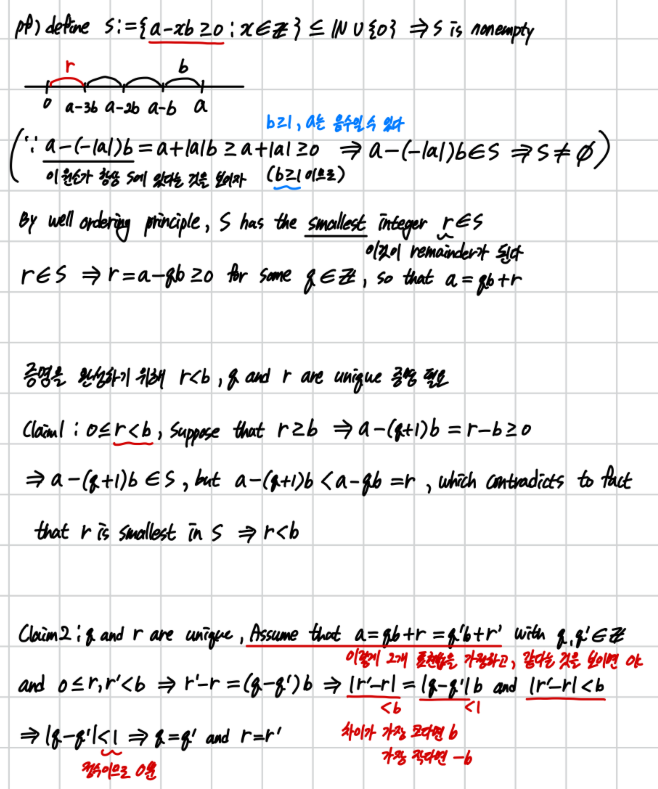 pf) define S:={a-xb≥0 : x∈ℤ} ≤ ℕ∪{0} ⇒ S is nonempty
r b
0 a-3b a-2b a-b a
b≥1, a는 음수일 수 있다
(∵ a-(-|a|)b = a+|a|b ≥ a+|a| ≥0 ⇒ a-(-|a|)b∈S ⇒ S≠∅)
이 원소가 항상 S에 있다는 것을 보이자 (b≥1 이므로)
By well ordering principle, S has the smallest integer r∈S
이것이 remainder가 된다
r∈S ⇒ r=a-qb≥0 for some q∈ℤ, so that a=qb+r
증명을 완성하기 위해 r<b, q and r are unique 증명 필요
Claim1 : 0≤r<b, suppose that r≥b ⇒ a-(q+1)b = r-b≥0
⇒ a-(q+1)b ∈S, but a-(q+1)b < a-qb = r, which contradicts to fact
that r is smallest in S ⇒ r<b
Claim2 : q and r are unique, Assume that a=qb+r=q'b+r' with q,q'∈ℤ
이렇게 2개 표현법을 가정하고, 같다는 것을 보이면 야
and 0≤r,r'<b ⇒ r'-r=(q-q')b ⇒ |r'-r| = |q-q'|b and |r'-r|<b
<b <1
⇒ |q-q'|<1 ⇒ q=q' and r=r' 차이가 가장 크다면 b
정수이므로 0뿐 가장 작다면 -b